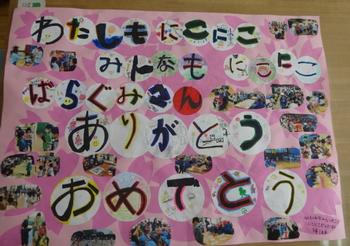 わたしもにこにこ
みんなもにこにこ
ばらぐみさん
ありがとう
おめでとう